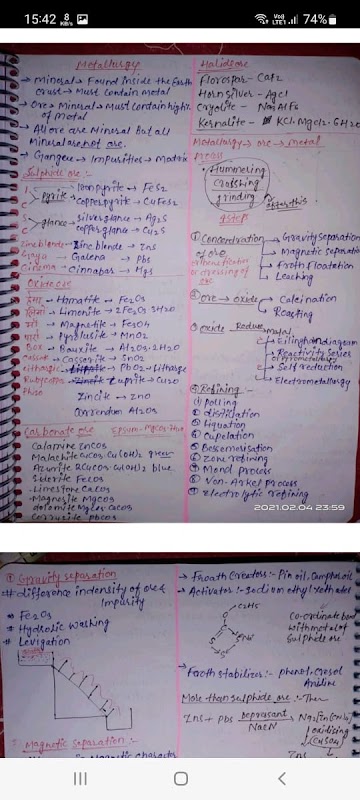 15:42
8
KB/s
Vo))
LTE1
74%
Metallurgy
→ Mineral → Found inside the Earth
crust → Must contain Metal
→ Ore → Mineral → Must contain high%
of Metal
→ All ore are Mineral But all
Mineral are not ore.
→ Gangue → Impurities → Matrix
Sulphide ore :-
pyrite
Iron pyrite → FeS2
copper pyrite → CuFeS2
glance
Silver glance → Ag2S
copper glance → Cu2S
Zinc blende
Zinc blende → ZnS
Galena → PbS
Cinema
Cinnabar → HgS
Oxide ore
Hematite → Fe2O3
Limonite → 2Fe2O3 3H2O
Magnetite → Fe3O4
Pyrolusite → MnO2
Box
Bauxite → Al2O3·2H2O
Cassiterite → SnO2
PbO2 → Litharge
Cuprite → Cu2O
Zincite → ZnO
Corrundum Al2O3
Carbonate ore
Epsum - MgSO4 7H2O
Calamine ZnCO3
Malachite CuCO3 Cu(OH)2 green
Azurite 2CuCO3 Cu(OH)2 blue
Siderite FeCO3
Limestone CaCO3
Magnesite MgCO3
dolomite MgCO3 CaCO3
Cerrusite PbCO3
Halide ore
Florospar - CaF2
Horn silver - AgCl
Cryolite - Na3AlF6
Kernalite - KCl·MgCl2·6H2O
Metallurgy → ore → metal
process
Hummering
Crosshing
grinding
after this
4 steps
① Concentration
of ore
→ Gravity separation
→ Magnetic separation
→ Froth Floatation
→ Leaching
② ore → oxide
→ Calcination
→ Roasting
③ oxide Reduce metal
→ Ellinghamdiagram
→ Reactivity series
or Pyrometallurgy
→ Self reduction
→ Electrometallurgy
④ Refining :-
① Polling
② distillation
③ liquation
④ Cupelation
⑤ Bessemerisation
⑥ Zone refining
⑦ Mond process
⑧ Van-Arkel process
⑨ Electrolytic refining
2021.02.04 23:59
① Gravity separation
# difference in density of ore &
impurity
Fe2O3
# Hydrolic washing
# Levigation
2. Magnetic separation :-
Magnetic character
→ Froath Creators :- Pin oil, Camphor oil
→ Activators :- Sodium ethyl xethates
C2H5
Co-ordinate bond
with metal of
Sulphide ore
→ Froth stabilizers :- phenol, cresol
Aniline
More than sulphide ore :- Then
ZnS + PbS
Depressant
NaCN
oxidising
(CuSO4)
ZnS